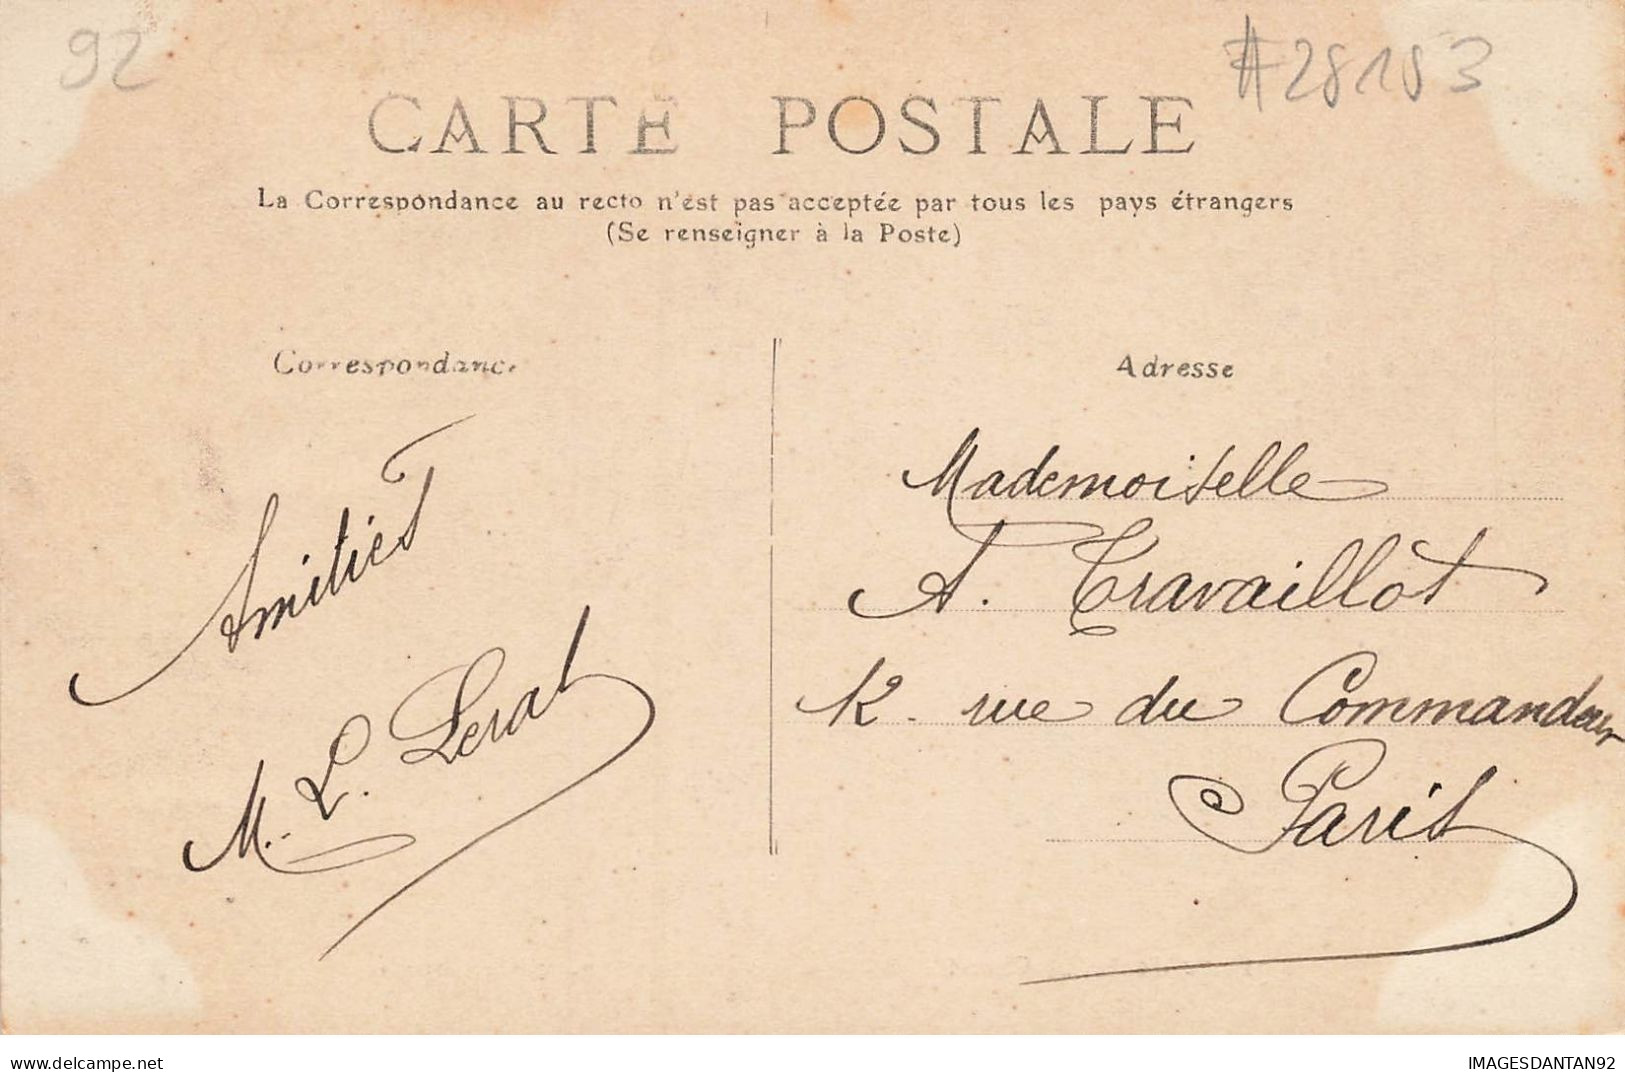 92
#28183
CARTE POSTALE
La Correspondance au recto n'est pas acceptée par tous les pays étrangers
(Se renseigner à la Poste)
Correspondance
Amitiés
M. L. Lerat
Adresse
Mademoiselle
A. Travaillot
12. rue du Commandeur
Paris
delcampe.net
IMAGESDANTAN92